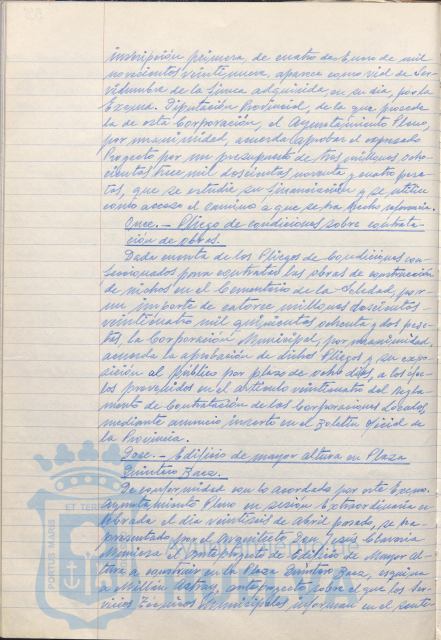 inscripción primera, de cuatro de Enero de mil
novecientos veintinueve, aparece como vial de Ser-
vidumbre de la finca adquirida en su día, por la
Excma. Diputación Provincial, de la que procede
la de esta Corporación, el Ayuntamiento Pleno,
por unanimidad, acuerda aprobar el expresado
Proyecto por un presupuesto de tres millones ocho-
cientos trece mil doscientas noventa y cuatro pese-
tas, que se estudie su financiación y se utilice
como acceso el camino a que se ha hecho referencia.
Once.- Pliego de condiciones sobre contrata-
ción de obras.
Dada cuenta de los Pliegos de Condiciones con-
feccionados para contratar las obras de construcción
de nichos en el Cementerio de la Soledad, por
un importe de catorce millones doscientas
veinticuatro mil quinientas ochenta y dos pese-
tas, la Corporación Municipal, por unanimidad,
acuerda la aprobación de dichos Pliegos y su expo-
sición al público por plazo de ocho días, a los efec-
tos prevenidos en el artículo veinticuatro del Regla-
mento de Contratación de las Corporaciones Locales,
mediante anuncio inserto en el Boletín Oficial de
la Provincia.
Doce.- Edificio de mayor altura en Plaza
Quintero Baez.
De conformidad con lo acordado por este Excmo.
Ayuntamiento Pleno en sesión Extraordinaria ce-
lebrada el día veintiseis de Abril pasado, se ha
presentado por el Arquitecto Don Jesús
el anteproyecto de Edificio de Mayor Al-
tura a construir en la Plaza Quintero Baez, esquina
a Millán Astray, anteproyecto sobre el que los Ser-
vicios Técnicos Municipales informan en el senti-
PORTUS MARIS
ET TER